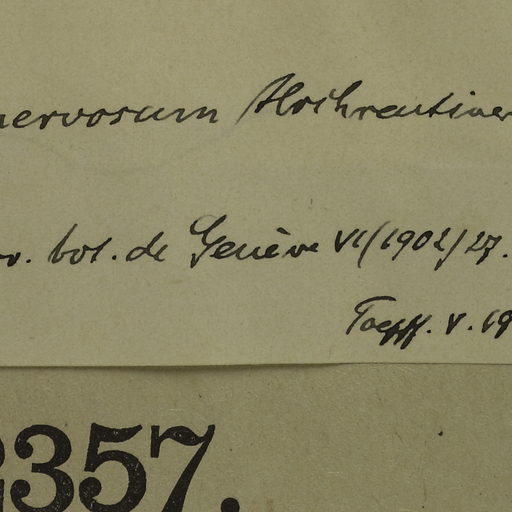 nervosum Hochreutiner
bot. de Genève VI (1902) 27.
V. 19
2357.